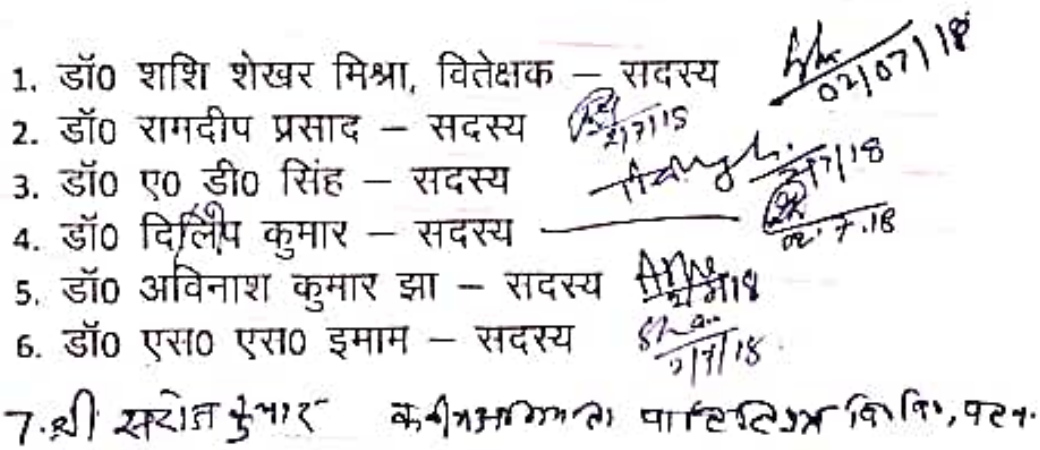 1. डॉ0 शशि शेखर मिश्रा, वितेक्षक – सदस्य 02/07/18
2. डॉ0 रामदीप प्रसाद – सदस्य 2/7/18
3. डॉ0 ए0 डी0 सिंह – सदस्य 2/7/18
4. डॉ0 दिलीप कुमार – सदस्य 02.7.18
5. डॉ0 अविनाश कुमार झा – सदस्य
6. डॉ0 एस0 एस0 इमाम – सदस्य
7. श्री सरोज कुमार